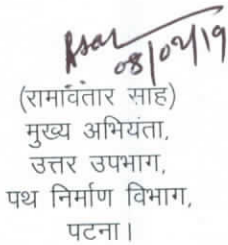 08/02/19
(रामावंतार साह)
मुख्य अभियंता,
उत्तर उपभाग,
पथ निर्माण विभाग,
पटना।